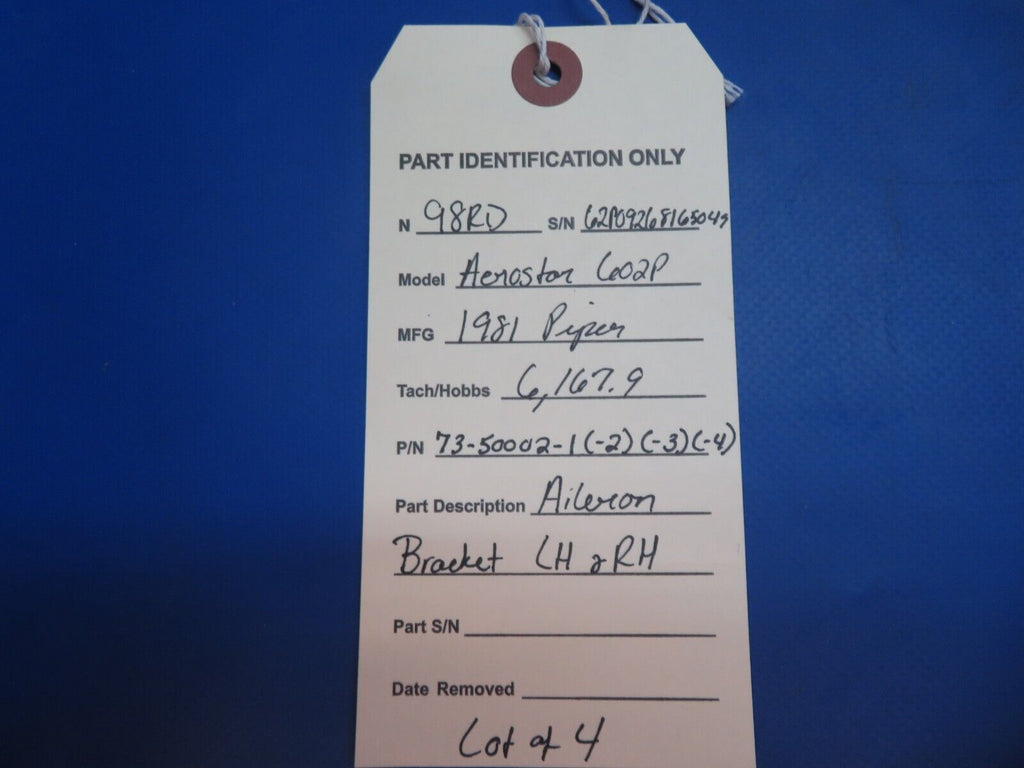 PART IDENTIFICATION ONLY
N 98RD S/N 62P09268165049
Model Aerostar 602P
MFG 1981 Piper
Tach/Hobbs 6,167.9
P/N 73-50002-1(-2)(-3)(-4)
Part Description Aileron
Bracket LH & RH
Part S/N
Date Removed
Lot of 4